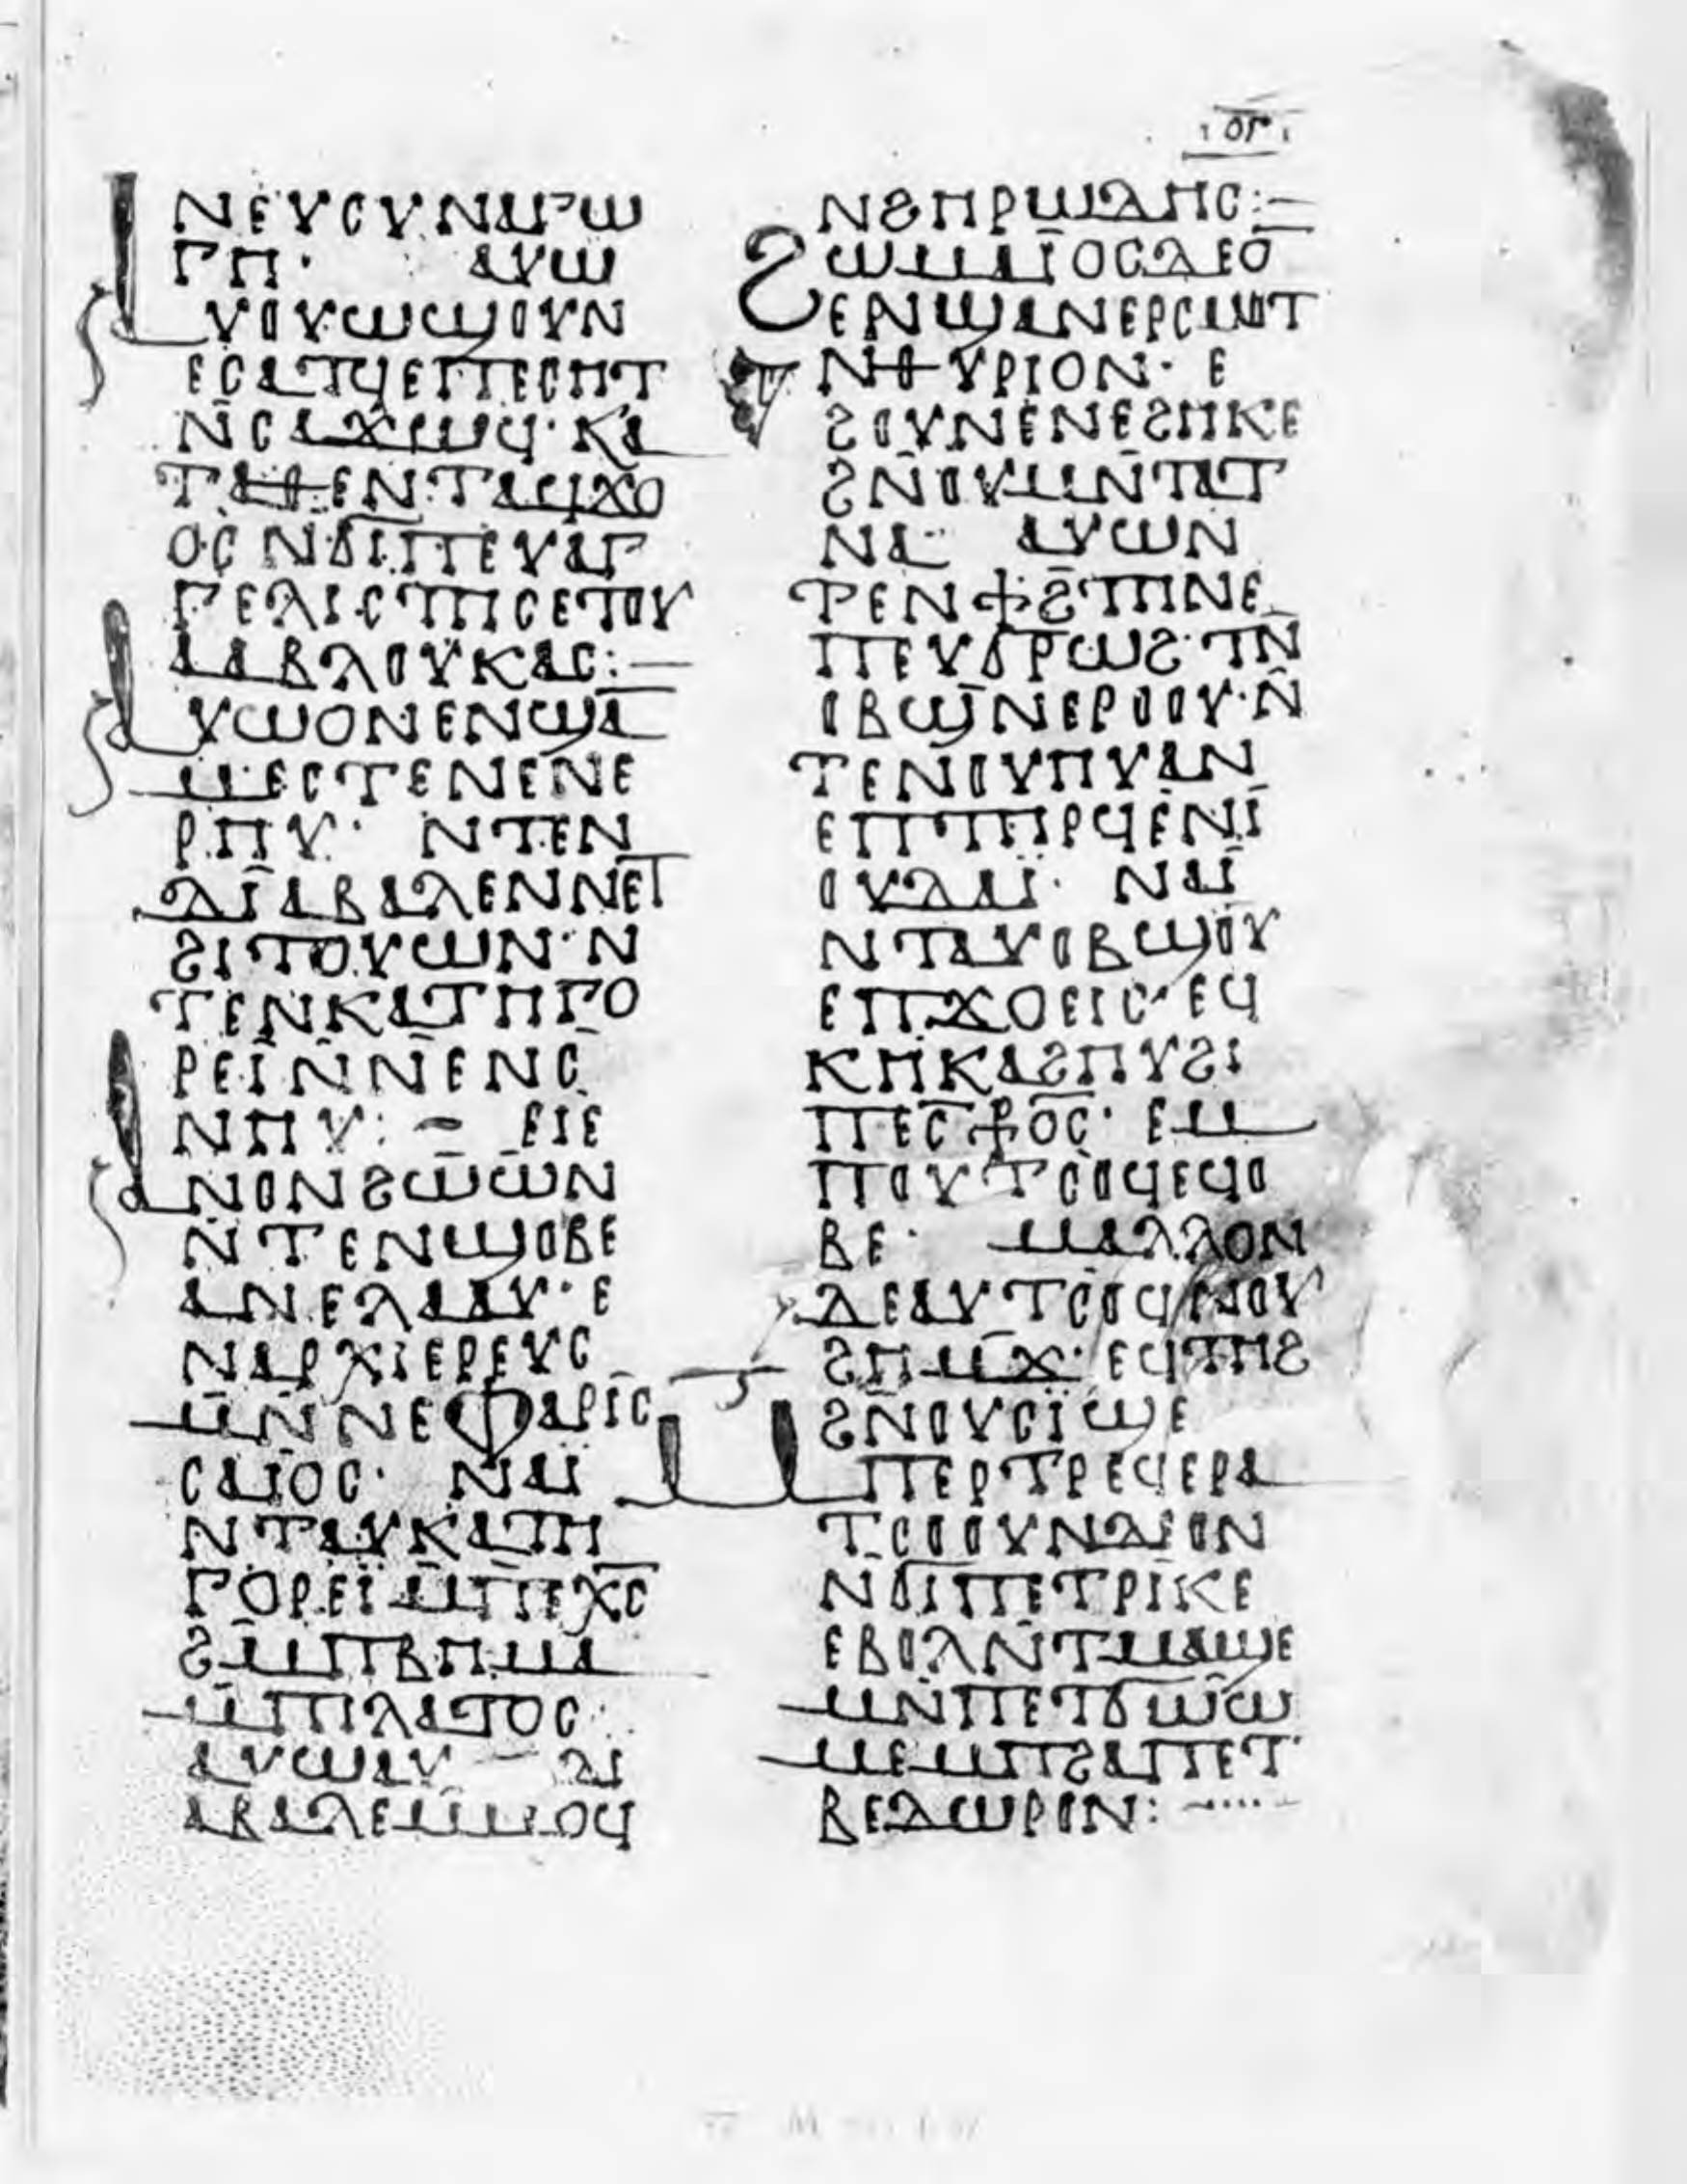 ⲟⲅ
ⲛⲉⲩⲥⲩⲛⲁⲅⲱ
ⲅⲏ· ⲁⲩⲱ
ⲁⲩⲟⲩⲱϣⲟⲩⲛ
ⲉⲥⲁⲧϥⲉⲡⲉⲥⲏⲧ
ⲛ̄ⲥⲁϫⲱϥ· ⲕⲁ
ⲧⲁⲑⲉⲛⲧⲁϥϫⲟ
ⲟⲥ ⲛϭⲓⲡⲉⲩⲁⲅ
ⲅⲉⲗⲓⲥⲧⲏⲥⲉⲧⲟⲩ
ⲁⲁⲃⲗⲟⲩⲕⲁⲥ:—
ⲁⲩⲱⲟⲛⲉⲛϣⲁ
ⲙⲉⲥⲧⲉⲛⲉⲛⲉ
ⲣⲏⲩ· ⲛⲧⲉⲛ
ⲇⲓⲁⲃⲁⲗⲉⲛⲛⲉⲧ
ϩⲓⲧⲟⲩⲱⲛ· ⲛ
ⲧⲉⲛⲕⲁⲧⲏⲅⲟ
ⲣⲉⲓ̈ⲛ̄ⲛⲉⲛⲥ
ⲛⲏⲩ:— ⲉⲓⲉ
ⲁⲛⲟⲛϩⲱⲱⲛ
ⲛ̄ⲧⲉⲛϣⲟⲃⲉ
ⲁⲛⲉⲗⲁⲁⲩ· ⲉ
ⲛⲁⲣⲭⲓⲉⲣⲉⲩⲥ
ⲙⲛ̄ⲛⲉⲫⲁⲣⲓⲥ
ⲥⲁⲓⲟⲥ· ⲛⲁⲓ̈
ⲛⲧⲁⲩⲕⲁⲧⲏ
ⲅⲟⲣⲉⲓ̈ⲙ̄ⲡⲉⲭ̄ⲥ̄
ϩⲙ̄ⲡⲃⲏⲙⲁ
ⲙ̄ⲡⲓⲗⲁⲧⲟⲥ·
ⲁⲩⲱⲁⲩ— ⲇⲓ
ⲁⲃⲁⲗⲉⲙⲙⲟϥ
ⲛϩⲏⲣⲱⲇⲏⲥ:—
ϩⲱⲙⲁⲓ̈ⲟⲥⲇⲉⲟ
ⲉⲛϣⲁⲛⲉⲣⲥⲙⲟⲧ
ⲛⲑⲩⲣⲓⲟⲛ· ⲉ
ϩⲟⲩⲛⲉⲛⲉϩⲏⲕⲉ
ϩⲛ̄ⲟⲩⲙⲛ̄ⲧⲁⲧ
ⲛⲁ· ⲁⲩⲱⲛ
ⲧⲣⲉⲛϯϩⲧⲏⲛⲉ
ⲡⲉⲩϭⲣⲱϩ· ⲧⲛ̄
ⲟⲃϣ̄ⲛⲉⲣⲟⲟⲩ· ⲛ̄
ⲧⲉⲛⲟⲩⲏⲩⲁⲛ
ⲉⲡⲧⲏⲣϥⲉⲛⲓ̈
ⲟⲩⲇⲁⲓ̈· ⲛⲁⲓ̈
ⲛⲧⲁⲩⲟⲃϣⲟⲩ
ⲉⲡϫⲟⲉⲓⲥ· ⲉϥ
ⲕⲏⲕⲁϩⲏⲩϩⲓ
ⲡⲉⲥ̄ϯⲟⲥ̄· ⲉⲙ
ⲡⲟⲩⲧⲥⲟϥⲉϥⲟ
ⲃⲉ· ⲙⲁⲗⲗⲟⲛ
ⲇⲉⲁⲩⲧⲥⲟϥⲛⲟⲩ
ϩⲏⲙϫ̄· ⲉϥⲧⲏϩ
ϩⲛ̄ⲟⲩⲥⲓ̈ϣⲉ
ⲙⲡⲉⲣⲧⲣⲉϥⲉⲣⲁ
ⲧⲥⲟⲟⲩⲛⲇⲉⲟⲛ
ⲛϭⲓⲡⲉⲧⲣⲓⲕⲉ
ⲉⲃⲟⲗⲛ̄ⲧⲙⲁϣⲉ
ⲙⲛ̄ⲡⲉⲧϭⲱⲱ
ⲙⲉⲙⲡϩⲁⲡⲉⲧ
ⲃⲉⲇⲱⲣⲟⲛ:—